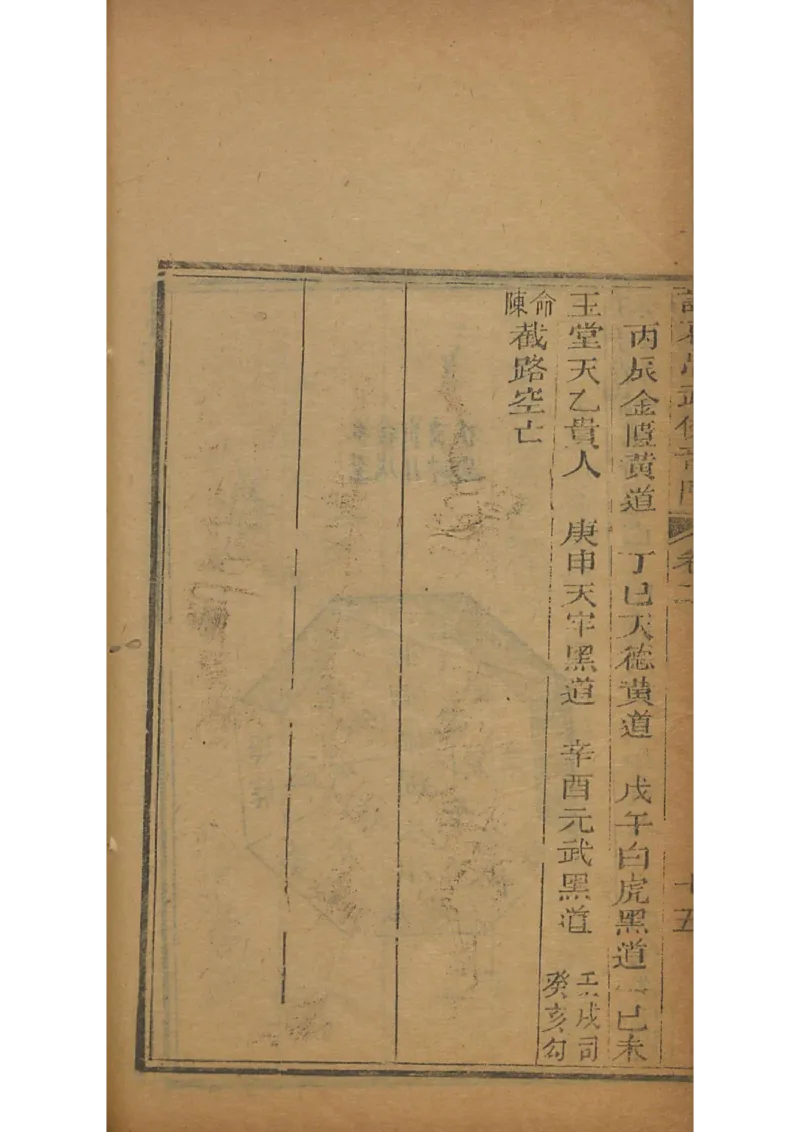 卷二
十五
丙辰金匱黃道 丁巳天德黃道 戊午白虎黑道 己未
玉堂天乙貴人 庚申天牢黑道 辛酉元武黑道 壬戌司
癸亥勾
命
陳
截路空亡